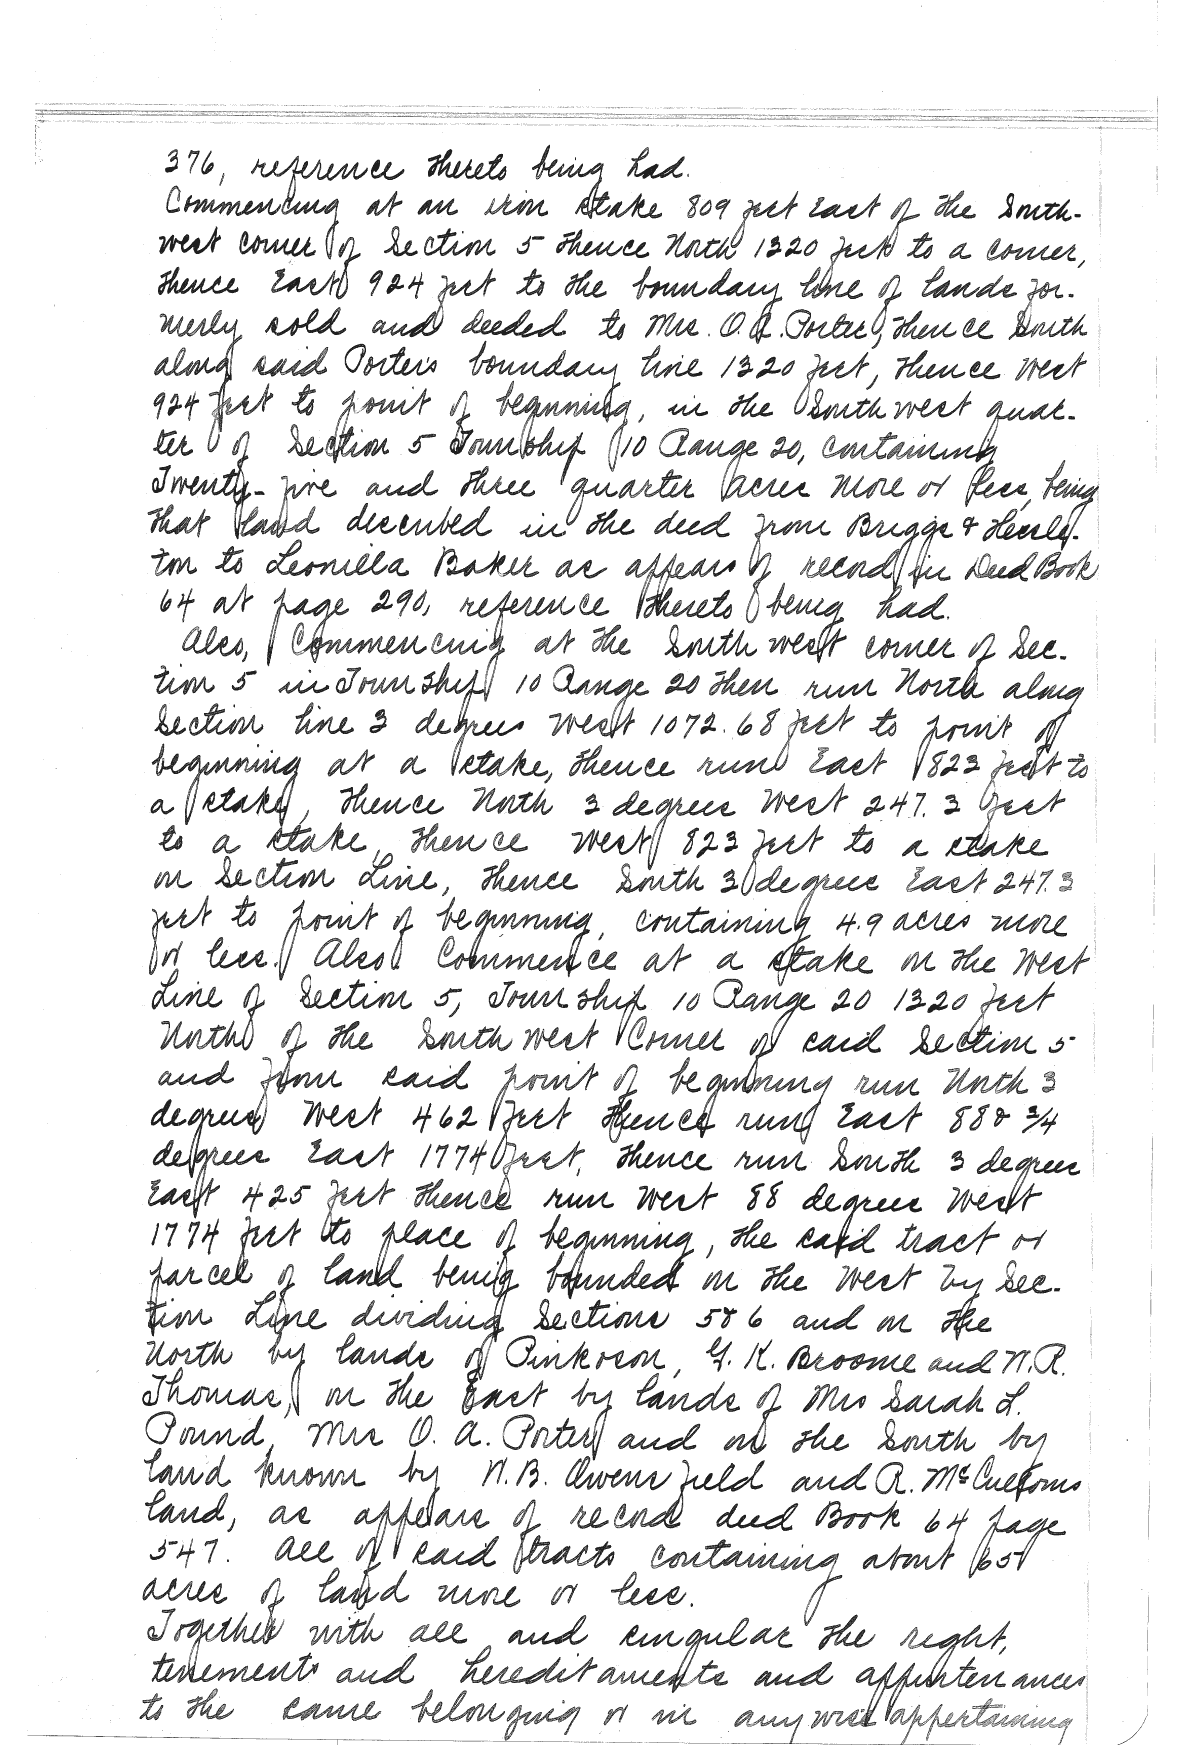 376, reference thereto being had.
Commencing at an iron stake 809 feet East of the South-
west corner of Section 5 thence North 1320 feet to a corner,
thence East 924 feet to the boundary line of lands for-
merly sold and deeded to Mrs. O. A. Porter, thence South
along said Porter's boundary line 1320 feet, thence West
924 feet to point of beginning, in the South west quar-
ter of Section 5 Township 10 Range 20, containing
Twenty-five and three quarter acres more or less, being
that land described in the deed from Briggs &
ton to Leonilla Baker as appears of record in Deed Book
64 at page 290, reference thereto being had.
Also, Commencing at the South west corner of Sec-
tion 5 in Township 10 Range 20 then run North along
Section line 3 degrees West 1072.68 feet to point of
beginning at a stake, thence run East 823 feet to
a stake, thence North 3 degrees West 247.3 feet
to a stake, thence West 823 feet to a stake
on Section Line, thence South 3 degrees East 247.3
feet to point of beginning, containing 4.9 acres more
or less. Also Commence at a stake on the West
Line of Section 5, Township 10 Range 20 1320 feet
North of the South west Corner of said Section 5
and from said point of beginning run North 3
degrees West 462 feet thence run East 88 & 3/4
degrees East 1774 feet, thence run South 3 degrees
East 425 feet thence run West 88 degrees West
1774 feet to place of beginning, the said tract or
parcel of land being bounded on the West by Sec-
tion Line dividing Sections 5 & 6 and on the
North by lands of Pinkoson, G. K. Broome and N. R.
Thomas, on the East by lands of Mrs Sarah L.
Pound, Mrs O. A. Porter and on the South by
land known by N. B. Owens field and R. McCulloms
land, as appears of record deed Book 64 page
547. All of said tracts containing about 65
acres of land more or less.
Together with all and singular the right,
tenements and hereditaments and appurtenances
to the same belonging or in anywise appertaining